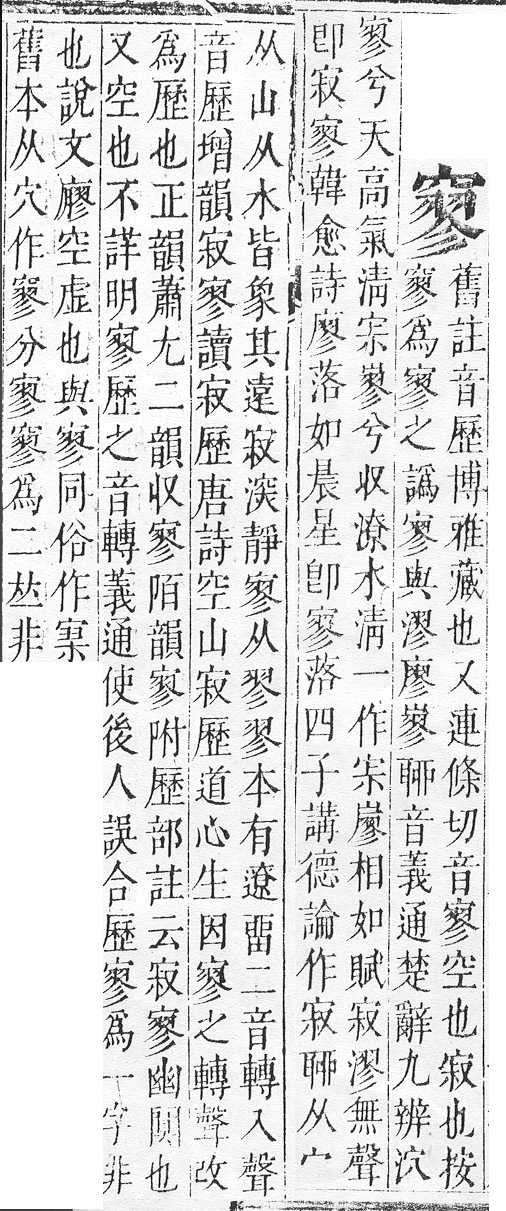 寥
舊註音歷博雅藏也又連條切音寥空也寂也按
寥爲寥之譌寥與漻廖嵺聊音義通楚辭九辨泬
寥兮天高氣淸宗嵺兮收潦水淸一作宗廫相如賦寂漻無聲
卽寂寥韓愈詩廖落如晨星卽寥落四子講德論作寂聊从宀
从山从水皆象其遠寂深靜寥从翏翏本有遼畱二音轉入聲
音歷增韻寂寥讀寂歷唐詩空山寂歷道心生因寥之轉聲改
爲歷也正韻蕭尢二韻收寥陌韻寥附歷部註云寂寥幽閴也
又空也不詳明寥歷之音轉義通使後人誤合歷寥爲一字非
也說文廫空虛也與寥同俗作寥
舊本从穴作寥分寥寥爲二𠀤非